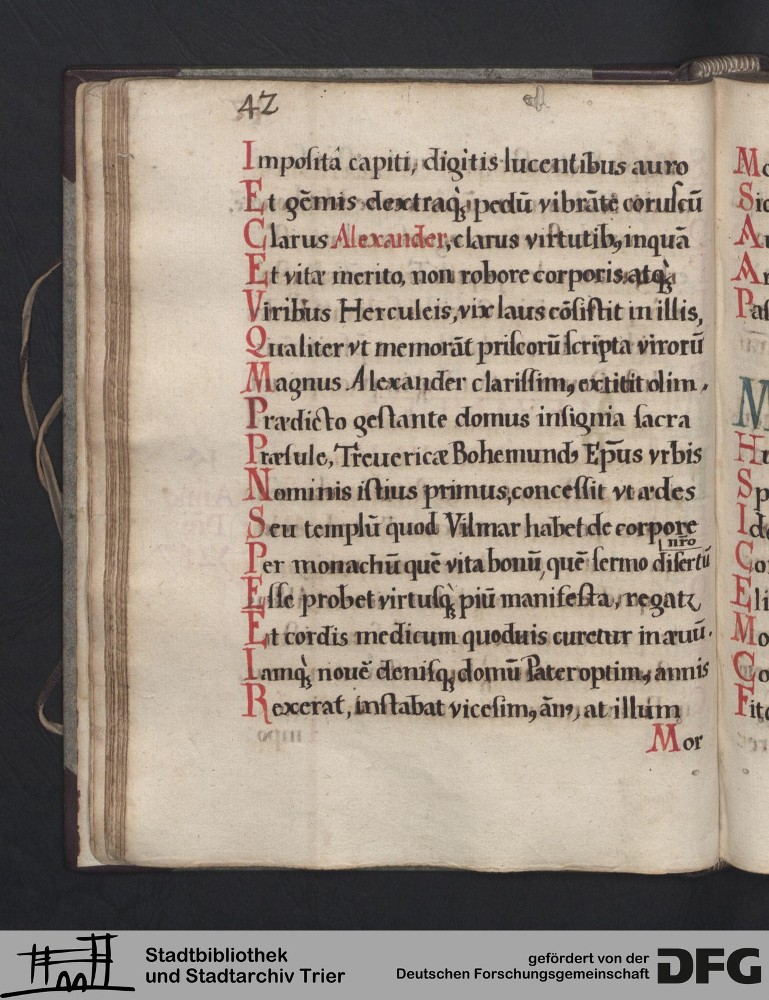 42
Impositâ capiti, digitis lucentibus auro
Et gēmis dextraq̀ꝫ pedū vibrāte coruscū
Clarus Alexander, clarus virtutibꝫ, inquā
Et vitæ merito, non robore corporis atq̀ꝫ
Viribus Herculeis, vix laus cōsistit in illis,
Qualiter vt memorāt priscorū scripta virorū
Magnus Alexander clarissimꝰ, extitit olim.
Prædicto gestante domus insignia sacra
Præsule, Treuericæ Bohemundꝰ Ep̄us vrbis
Nominis istius primus, concessit vt ædes
Seu templū quod Vilmar habet de corpore
nr̄o
Per monachū quē vita bonū, quē sermo disertū
Esse probet virtusq̀ꝫ piū manifesta, regatꝛ
Et cordis medicum quoduis curetur in æuū.
Iamq̀ꝫ nouē denisqꝫ domū Pater optimꝰ, annis
Rexerat, instabat vicesimꝰ, ānꝰ, at illum
Mor
Mo
S
A
A
Pas
M
H
Sp
Id
Co
Eli
Mo
Co
Fit
Stadtbibliothek
und Stadtarchiv Trier
gefördert von der
Deutschen Forschungsgemeinschaft
DFG